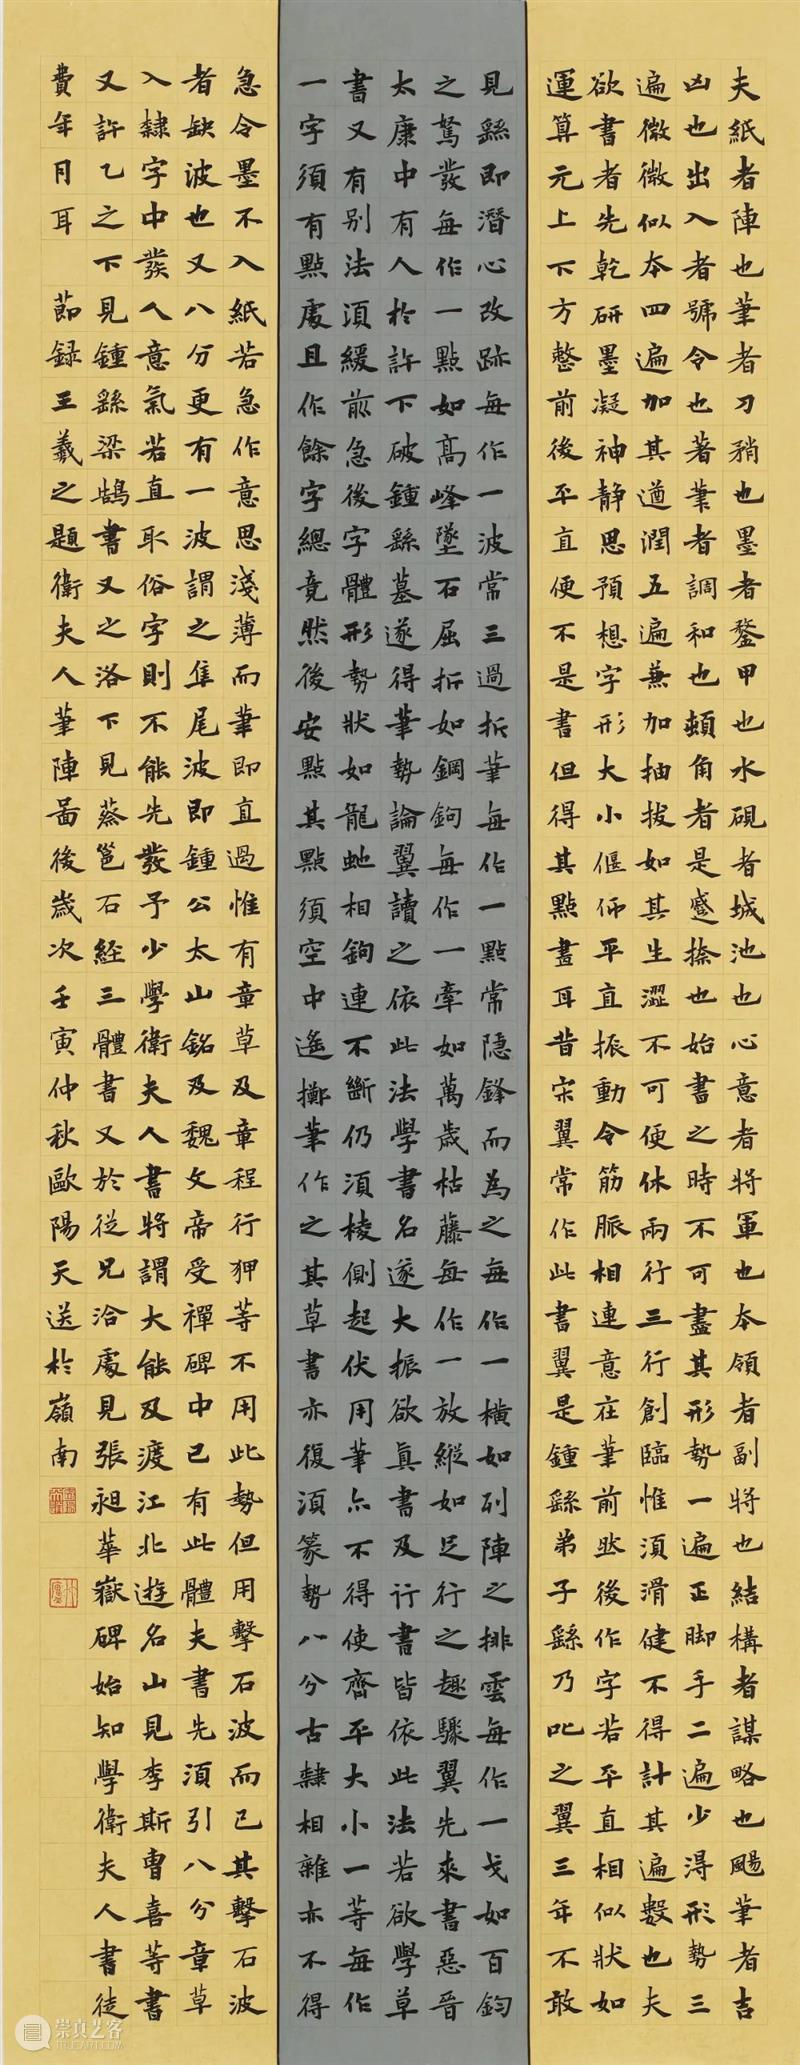 夫紙者陣也筆者刀矟也墨者鍪甲也水硯者城池也心意者將軍也本領者副將也結構者謀略也颺筆者吉
凶也出入者號令也著筆者調和也頓角者是蹙捺也始書之時不可盡其形勢一遍正脚手二遍少得形勢三
遍微微似本四遍加其遒潤五遍兼加抽拔如其生澀不可便休兩行三行創臨惟須滑健不得計其遍數也夫
欲書者先乾研墨凝神靜思預想字形大小偃仰平直振動令筋脈相連意在筆前然後作字若平直相似狀如
運算元上下方整前後平直便不是書但得其點畫耳昔宋翼常作此書翼是鍾繇弟子繇乃叱之翼三年不敢
見繇即潛心改跡每作一波常三過折筆每作一點常隱鋒而為之每作一橫如列陣之排雲每作一戈如百鈞
之駑發每作一點如高峰墜石屈折如鋼鉤每作一牽如萬歲枯藤每作一放縱如足行之趣驟翼先來書惡晉
太康中有人於許下破鍾繇墓遂得筆勢論翼讀之依此法學書名遂大振欲真書及行書皆依此法若欲學草
書又有別法須緩前急後字體形勢狀如龍虵相鉤連不斷仍須棱側起伏用筆亦不得使齊平大小一等每作
一字須有點處且作餘字總竟然後安點其點須空中遙擲筆作之其草書亦復須篆勢八分古隸相雜亦不得
急令墨不入紙若急作意思淺薄而筆即直過惟有章草及章程行狎等不用此勢但用擊石波而已其擊石波
者缺波也又八分更有一波謂之隼尾波即鍾公太山銘及魏文帝受禪碑中已有此體夫書先須引八分章草
入隸字中發人意氣若直取俗字則不能先發予少學衛夫人書將謂大能及渡江北遊名山見李斯曹喜等書
又許乙之下見鍾繇梁鵠書又之洛下見蔡邕石經三體書又於從兄洽處見張昶華嶽碑始知學衛夫人書徒
費年月耳 節録王羲之題衛夫人筆陣啚後歲次壬寅仲秋歐陽天送於嶺南
崇真艺客